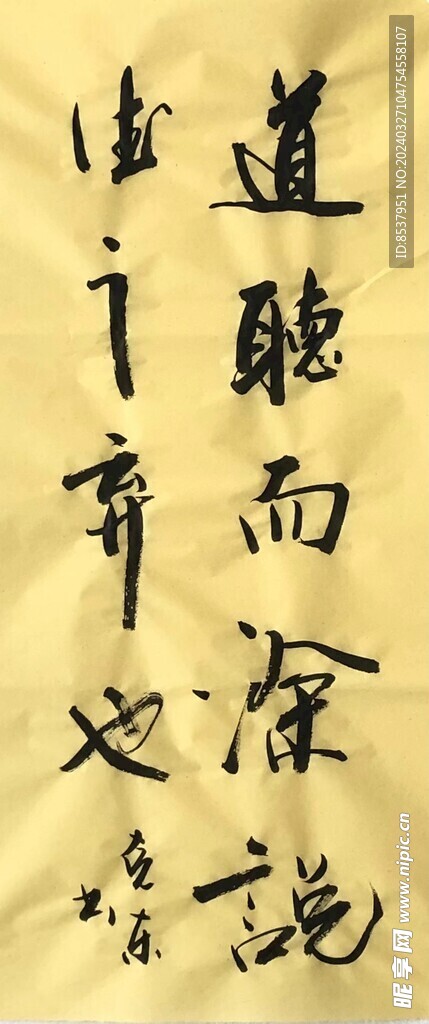 道聽而塗說
德之弃也
克东
书
ID:8537951 NO:20240327104754558107
昵享网 www.nipic.cn